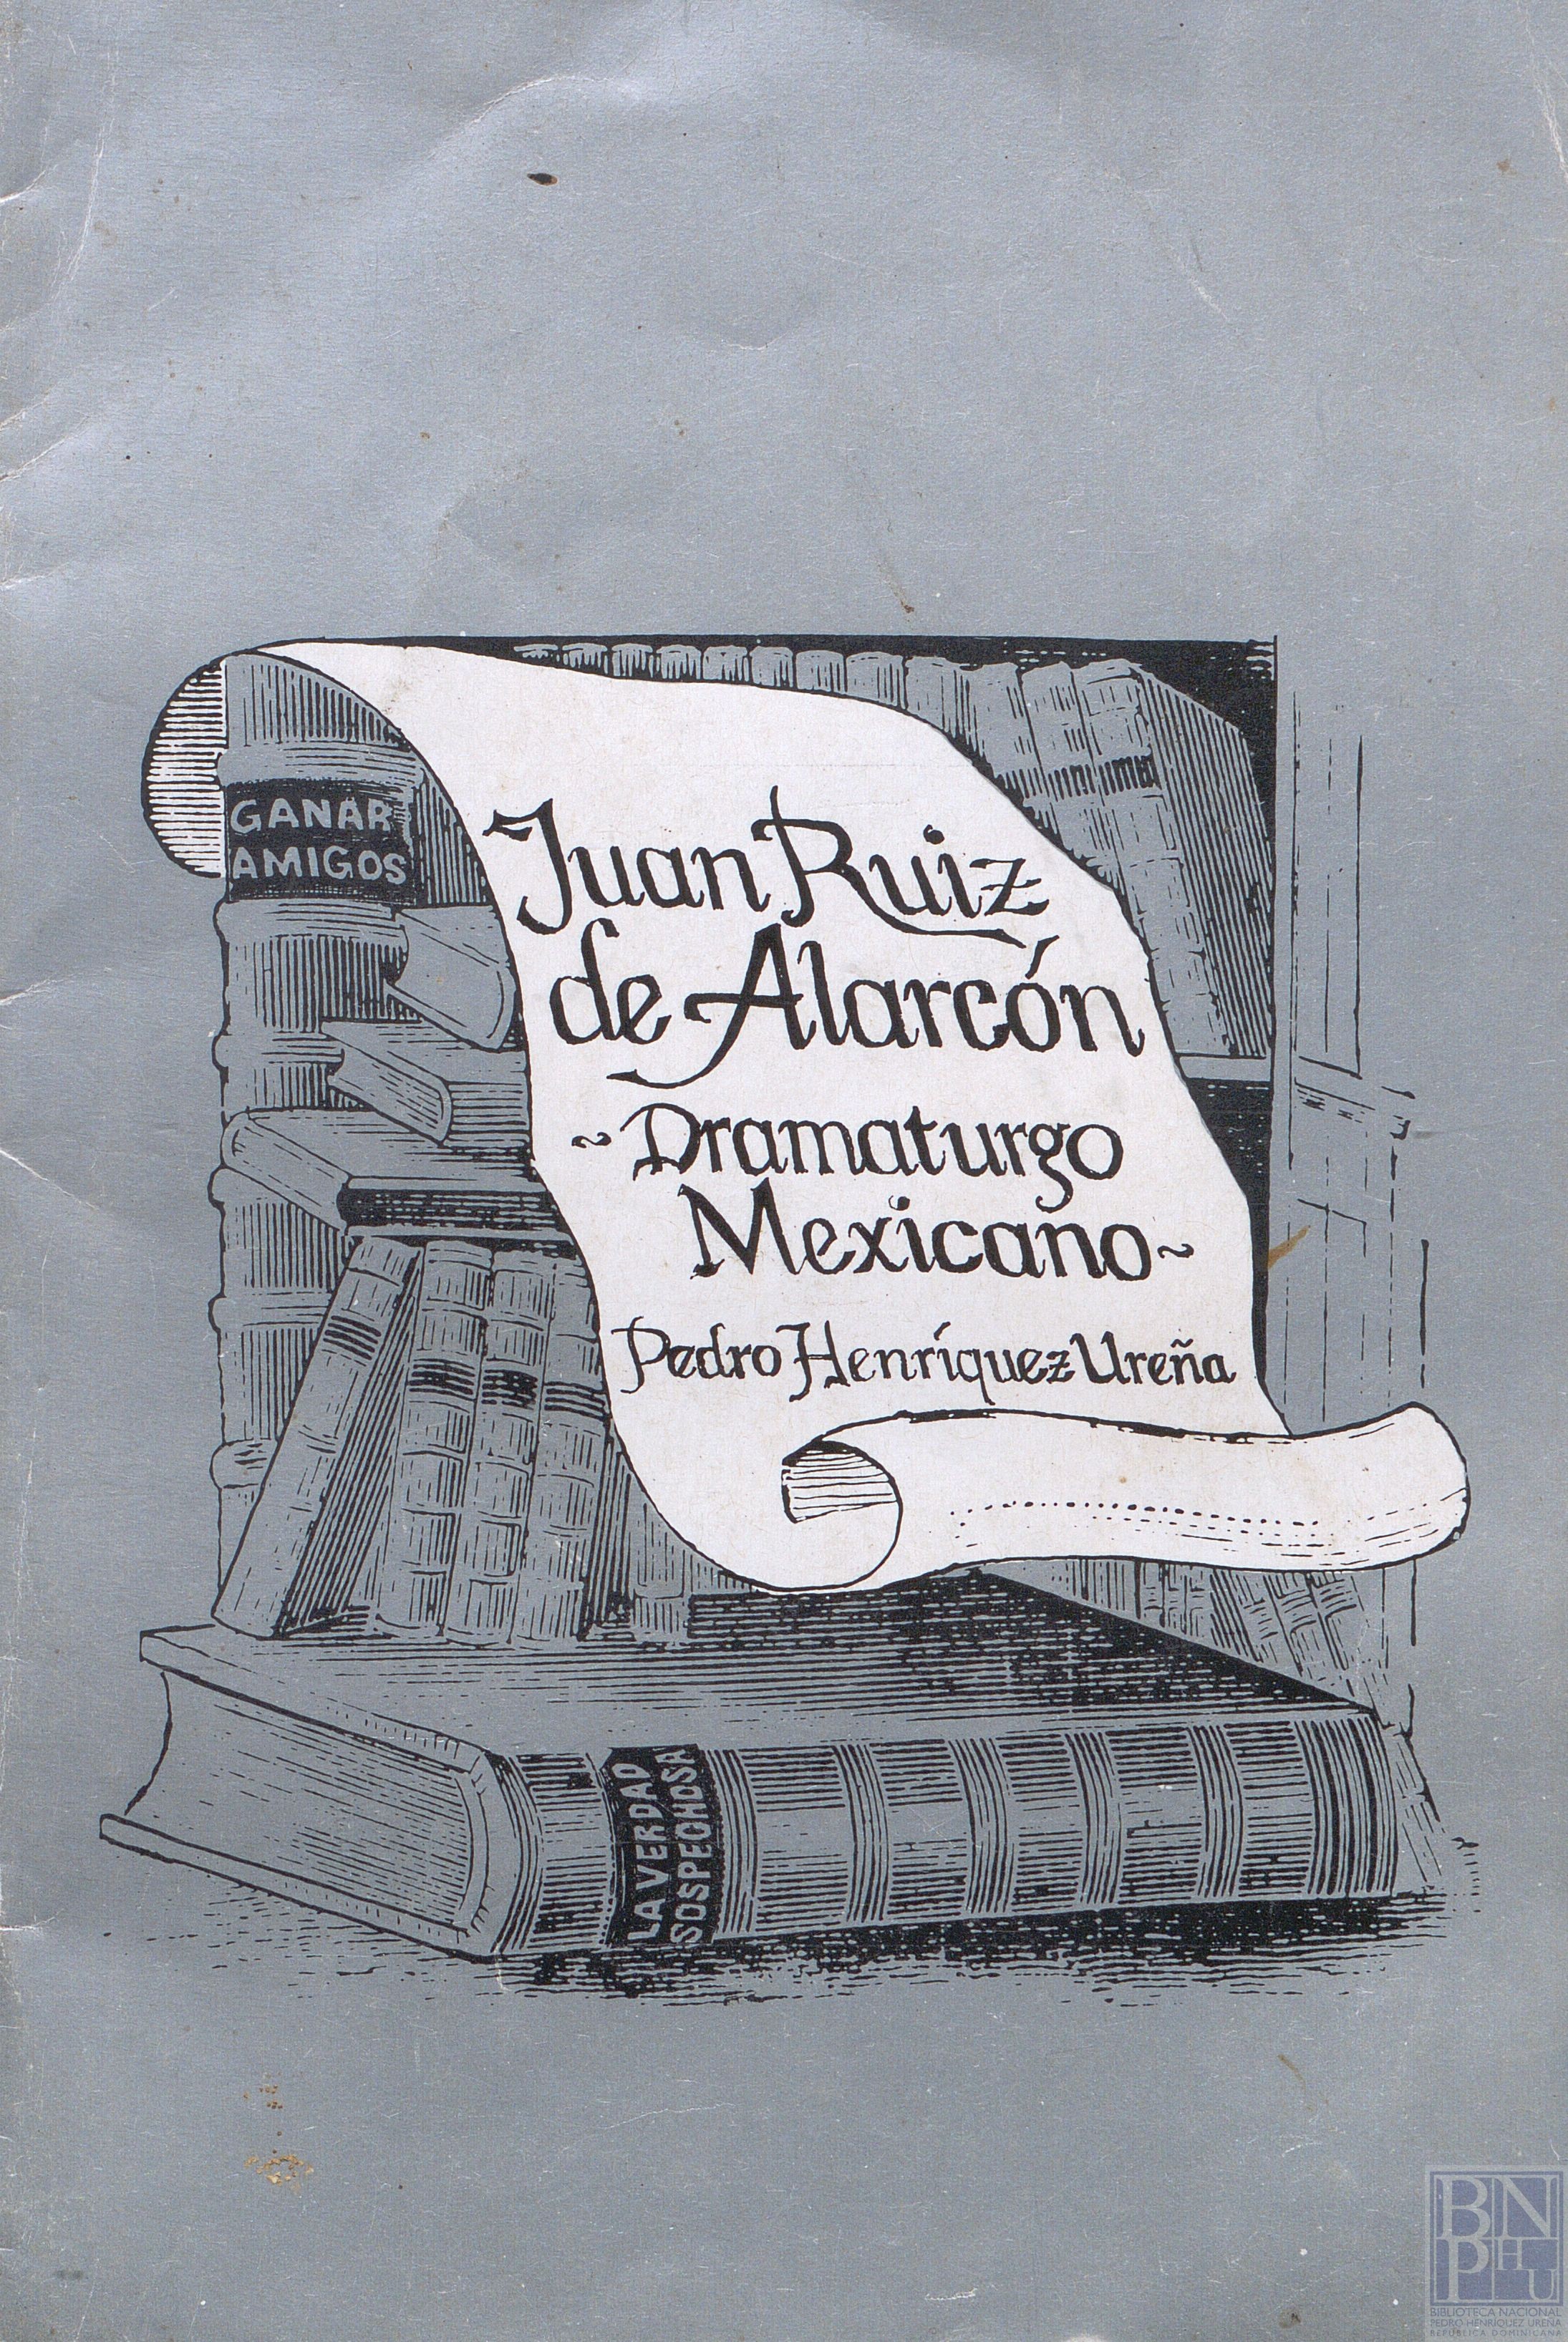 GANAR
AMIGOS
Juan Ruiz
de Alarcón
~Dramaturgo
Mexicano~
Pedro Henríquez Ureña
LA VERDAD
SOSPECHOSA
BN
PHU
BIBLIOTECA NACIONAL
PEDRO HENRÍQUEZ UREÑA
REPÚBLICA DOMINICANA